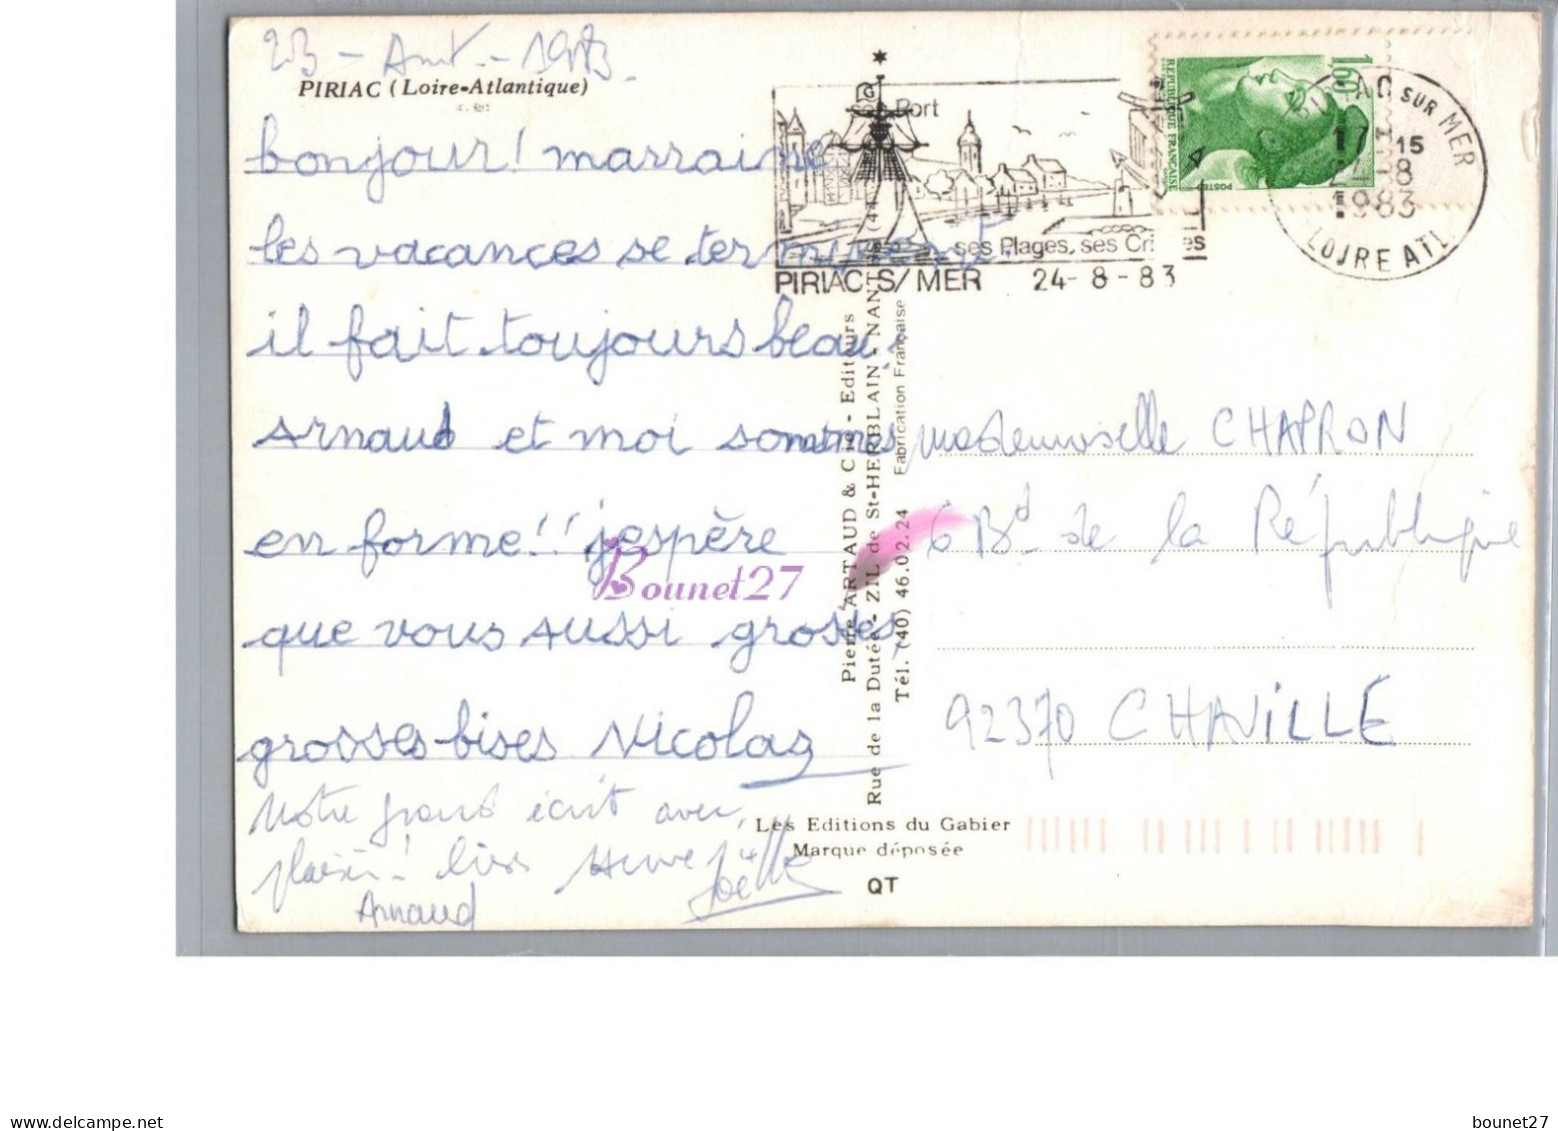 23 - Août - 1983.
PIRIAC (Loire-Atlantique)
bonjour! marraine
les vacances se terminent.
il fait toujours beau.
Arnaud et moi sommes
en forme!! j'espère
que vous aussi grosses,
grosses bises Nicolas
Notre grand écrit avec
plaisir! bises Hervé Joëlle
Arnaud
Port
ses Plages, ses Cri es
PIRIAC S/ MER 24-8-83
1,60
REPUBLIQUE FRANÇAISE
POSTES
AC SUR MER
17 15
24-8
1983
LOIRE ATL.
Pierre ARTAUD & Cie - Editeurs
Rue de la Dutée - ZIL de St-HERBLAIN - NANTES (44)
Tél. (40) 46.02.24 Fabrication Française
Mademoiselle CHAPRON
6 Bd de la République
92370 CHAVILLE
Les Editions du Gabier
Marque déposée
QT
Bounet27
www.delcampe.net
bounet27